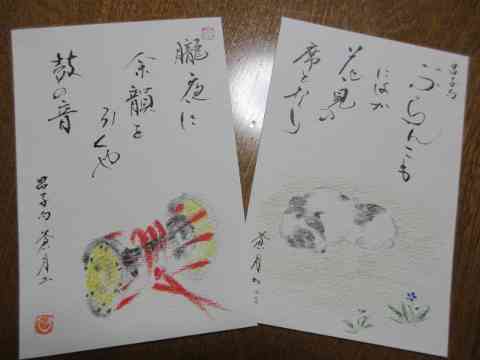 朧夜に
余韻を
引くや
鼓の音
昌子句
昌子句
ぶらんこも
にはか
花見の
席となり